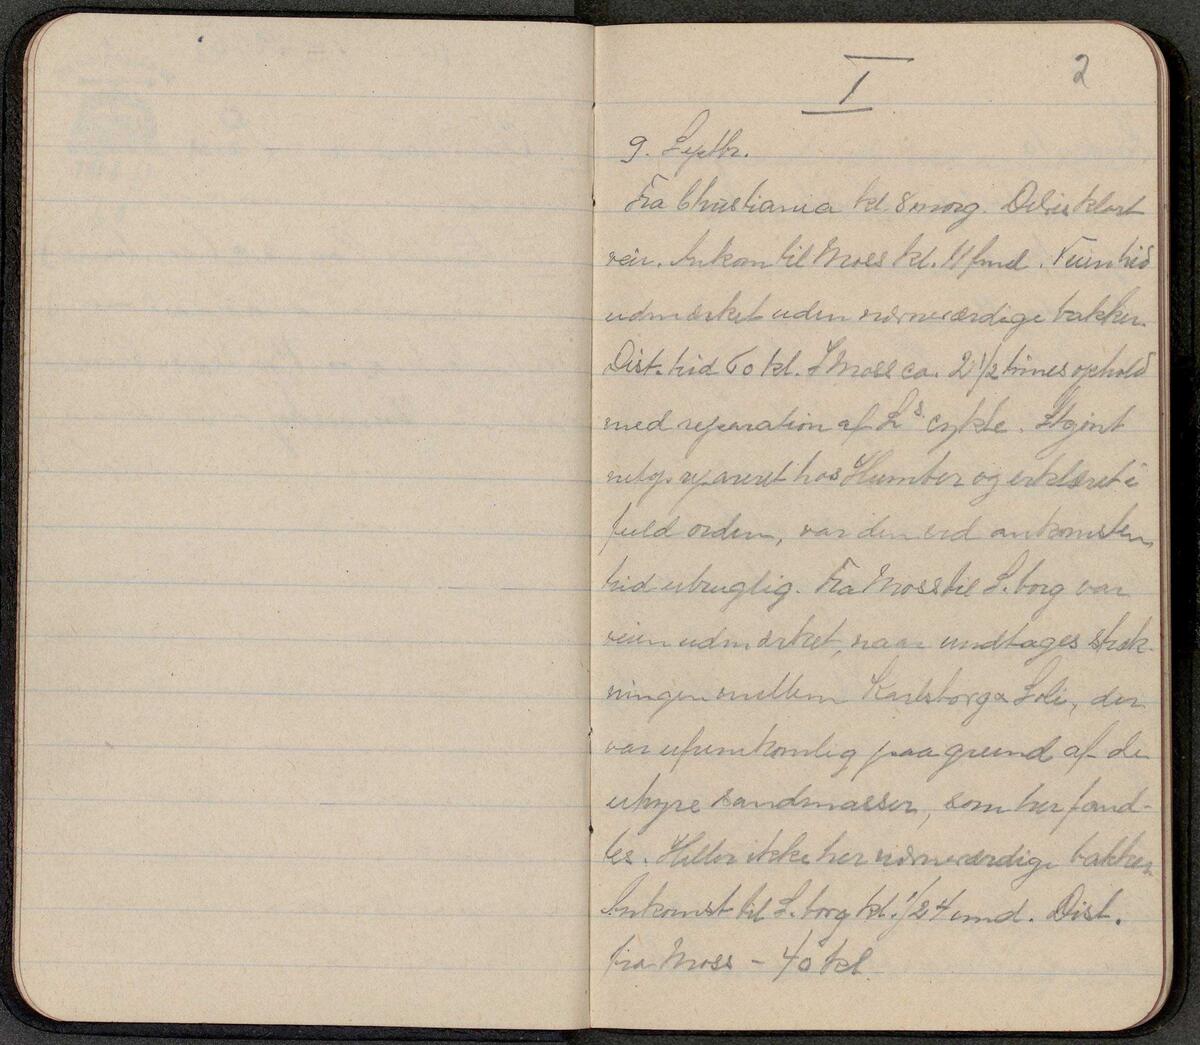 I
2
9. Septbr.
Fra Christiania kl. 8 morg. Delvis klart
veir. Ankom til Moss kl. 11 fmd. Veien hid
udmærket uden nævneværdige bakker.
Dist. hid 60 kl. I Moss ca. 2 1/2 times ophold
med reparation af L.s cykle. Skjønt
netop repareret hos Humber og erklæret i
fuld orden, var den ved ankomsten
hid ubruglig. Fra Moss til S.borg var
veien udmærket, naar undtages stræk-
ningen mellem Karlsborg & Soli, der
var ufremkomlig paa grund af de
uhyre sandmasser, som her fand-
tes. Heller ikke her nævneværdige bakker.
Ankomst til S.borg kl. 1/2 4 emd. Dist.
fra Moss – 40 kl.